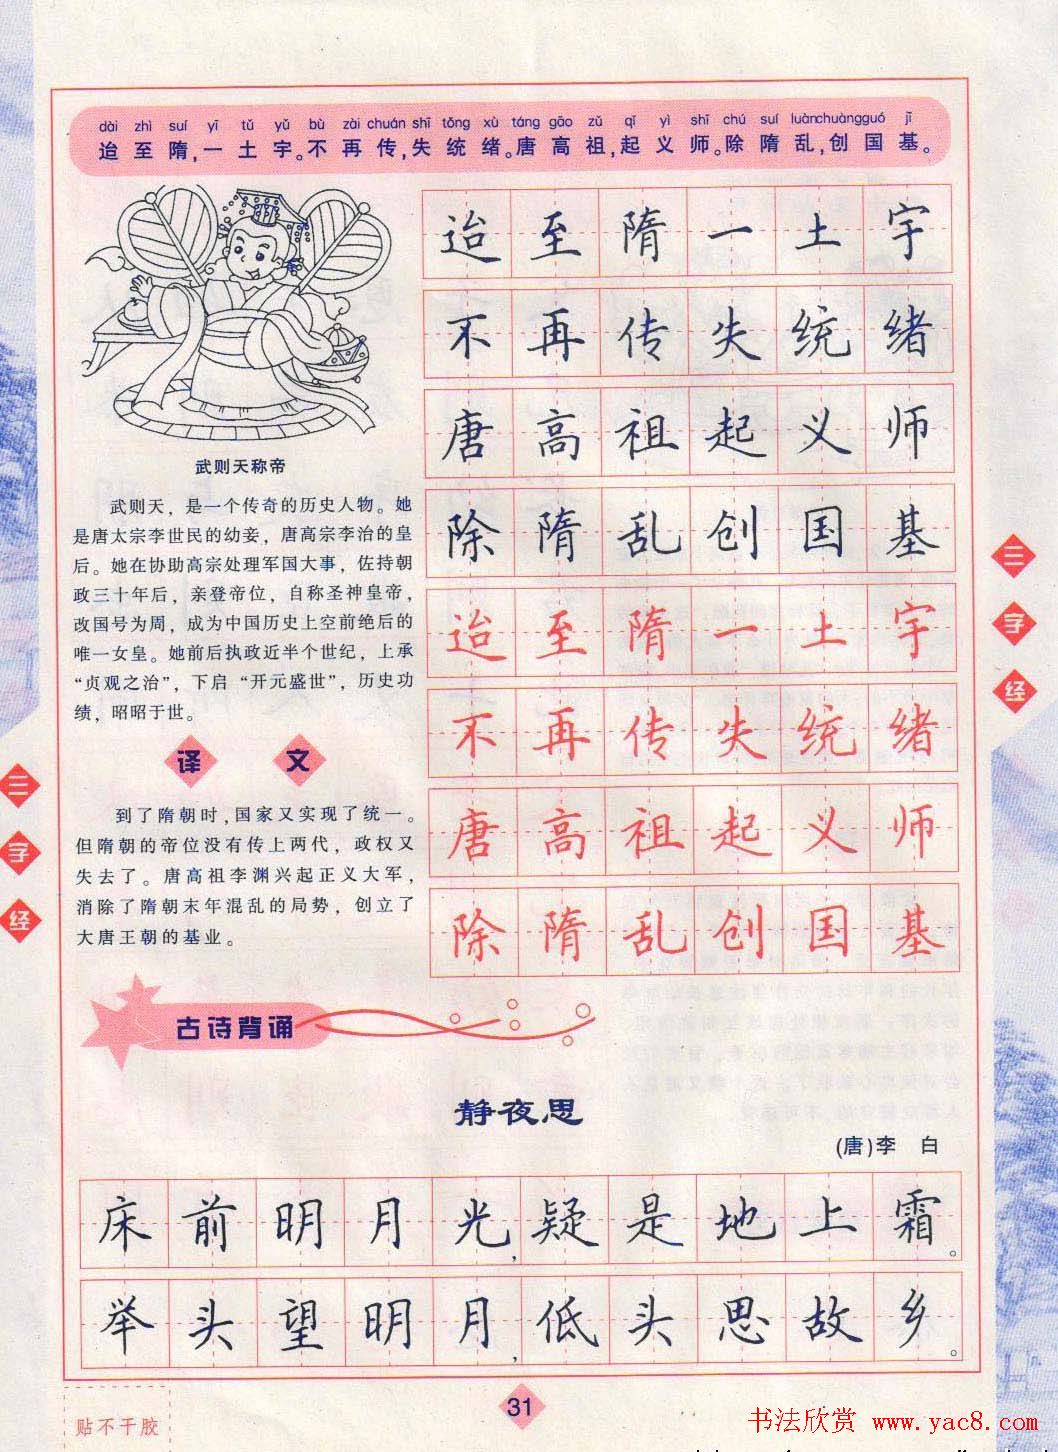 dài zhì suí yī tǔ yǔ bù zài chuán shī tǒng xù táng gāo zǔ qǐ yì shī chú suí luàn chuàng guó jī
迨至隋,一土宇。不再传,失统绪。唐高祖,起义师。除隋乱,创国基。
武则天称帝
武则天，是一个传奇的历史人物。她
是唐太宗李世民的幼妾，唐高宗李治的皇
后。她在协助高宗处理军国大事，佐持朝
政三十年后，亲登帝位，自称圣神皇帝，
改国号为周，成为中国历史上空前绝后的
唯一女皇。她前后执政近半个世纪，上承
“贞观之治”，下启“开元盛世”，历史功
绩，昭昭于世。
译文
到了隋朝时,国家又实现了统一。
但隋朝的帝位没有传上两代，政权又
失去了。唐高祖李渊兴起正义大军，
消除了隋朝末年混乱的局势，创立了
大唐王朝的基业。
迨至隋一土宇
不再传失统绪
唐高祖起义师
除隋乱创国基
迨至隋一土宇
不再传失统绪
唐高祖起义师
除隋乱创国基
三字经
三字经
古诗背诵
静夜思
(唐)李 白
床前明月光,疑是地上霜。
举头望明月,低头思故乡。
31
贴不干胶
书法欣赏 www.yac8.com